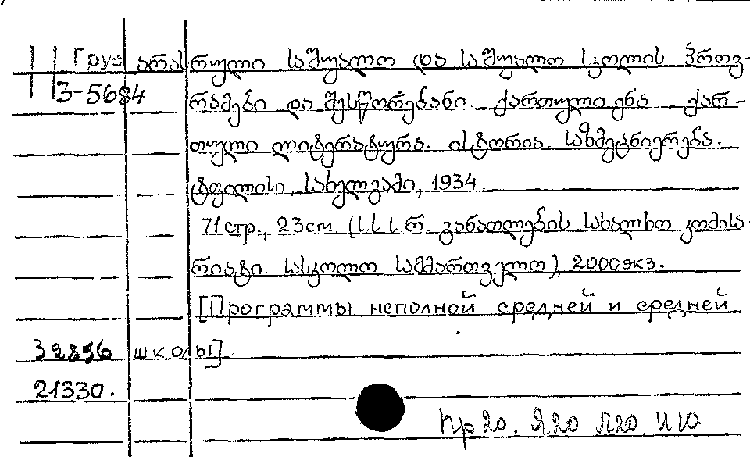 Груз არასრული საშუალო და საშუალო სკოლის პროგ-
3-5684 რამები და შესწორებანი. ქართული ენა. ქარ-
თული ლიტერატურა. ისტორია. საზმეცნიერება.
ტფილისი, სახელგამი, 1934.
71 стр., 23см. (ს ს ს რ. განათლების სახალხო კომისა-
რიატი. სასკოლო სამმართველო) 2000экз.
[Программы неполной средней и средней
32856 школы]
21330.
Пр20. Я20 Л20 И10